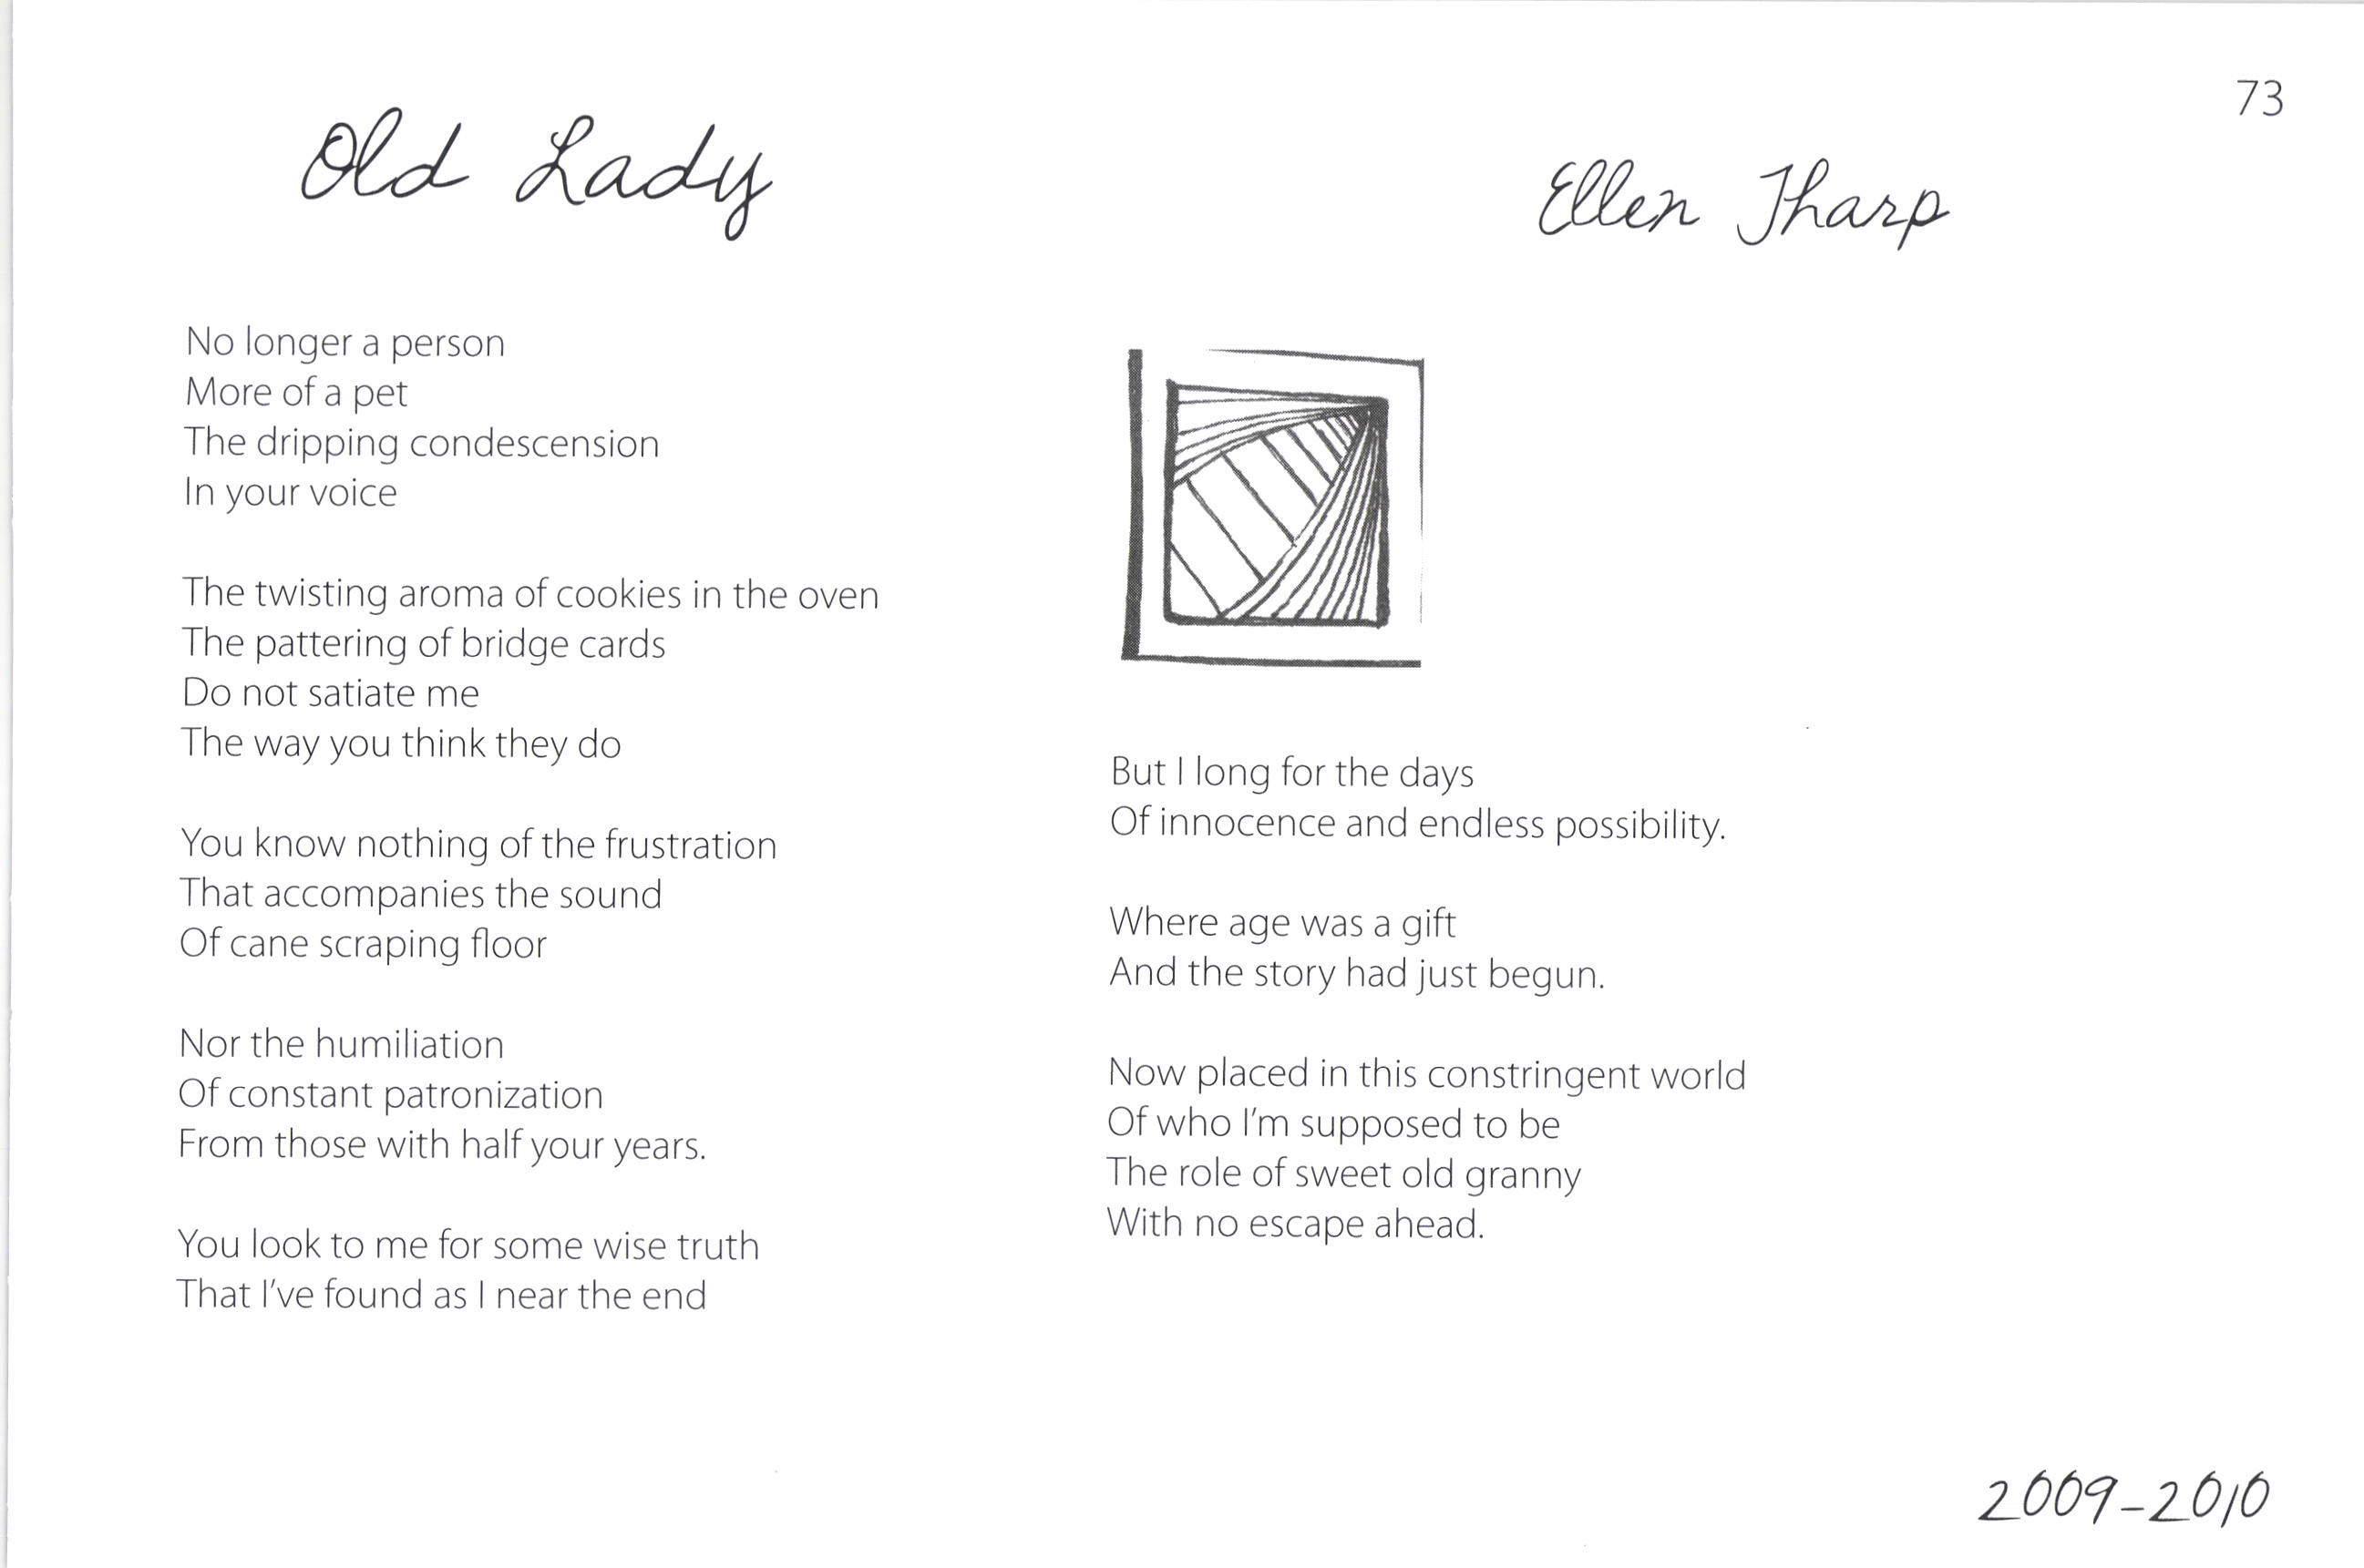 73
Old Lady
Ellen Tharp
No longer a person
More of a pet
The dripping condescension
In your voice
The twisting aroma of cookies in the oven
The pattering of bridge cards
Do not satiate me
The way you think they do
You know nothing of the frustration
That accompanies the sound
Of cane scraping floor
Nor the humiliation
Of constant patronization
From those with half your years.
You look to me for some wise truth
That I've found as I near the end
But I long for the days
Of innocence and endless possibility.
Where age was a gift
And the story had just begun.
Now placed in this constringent world
Of who I'm supposed to be
The role of sweet old granny
With no escape ahead.
2009-2010